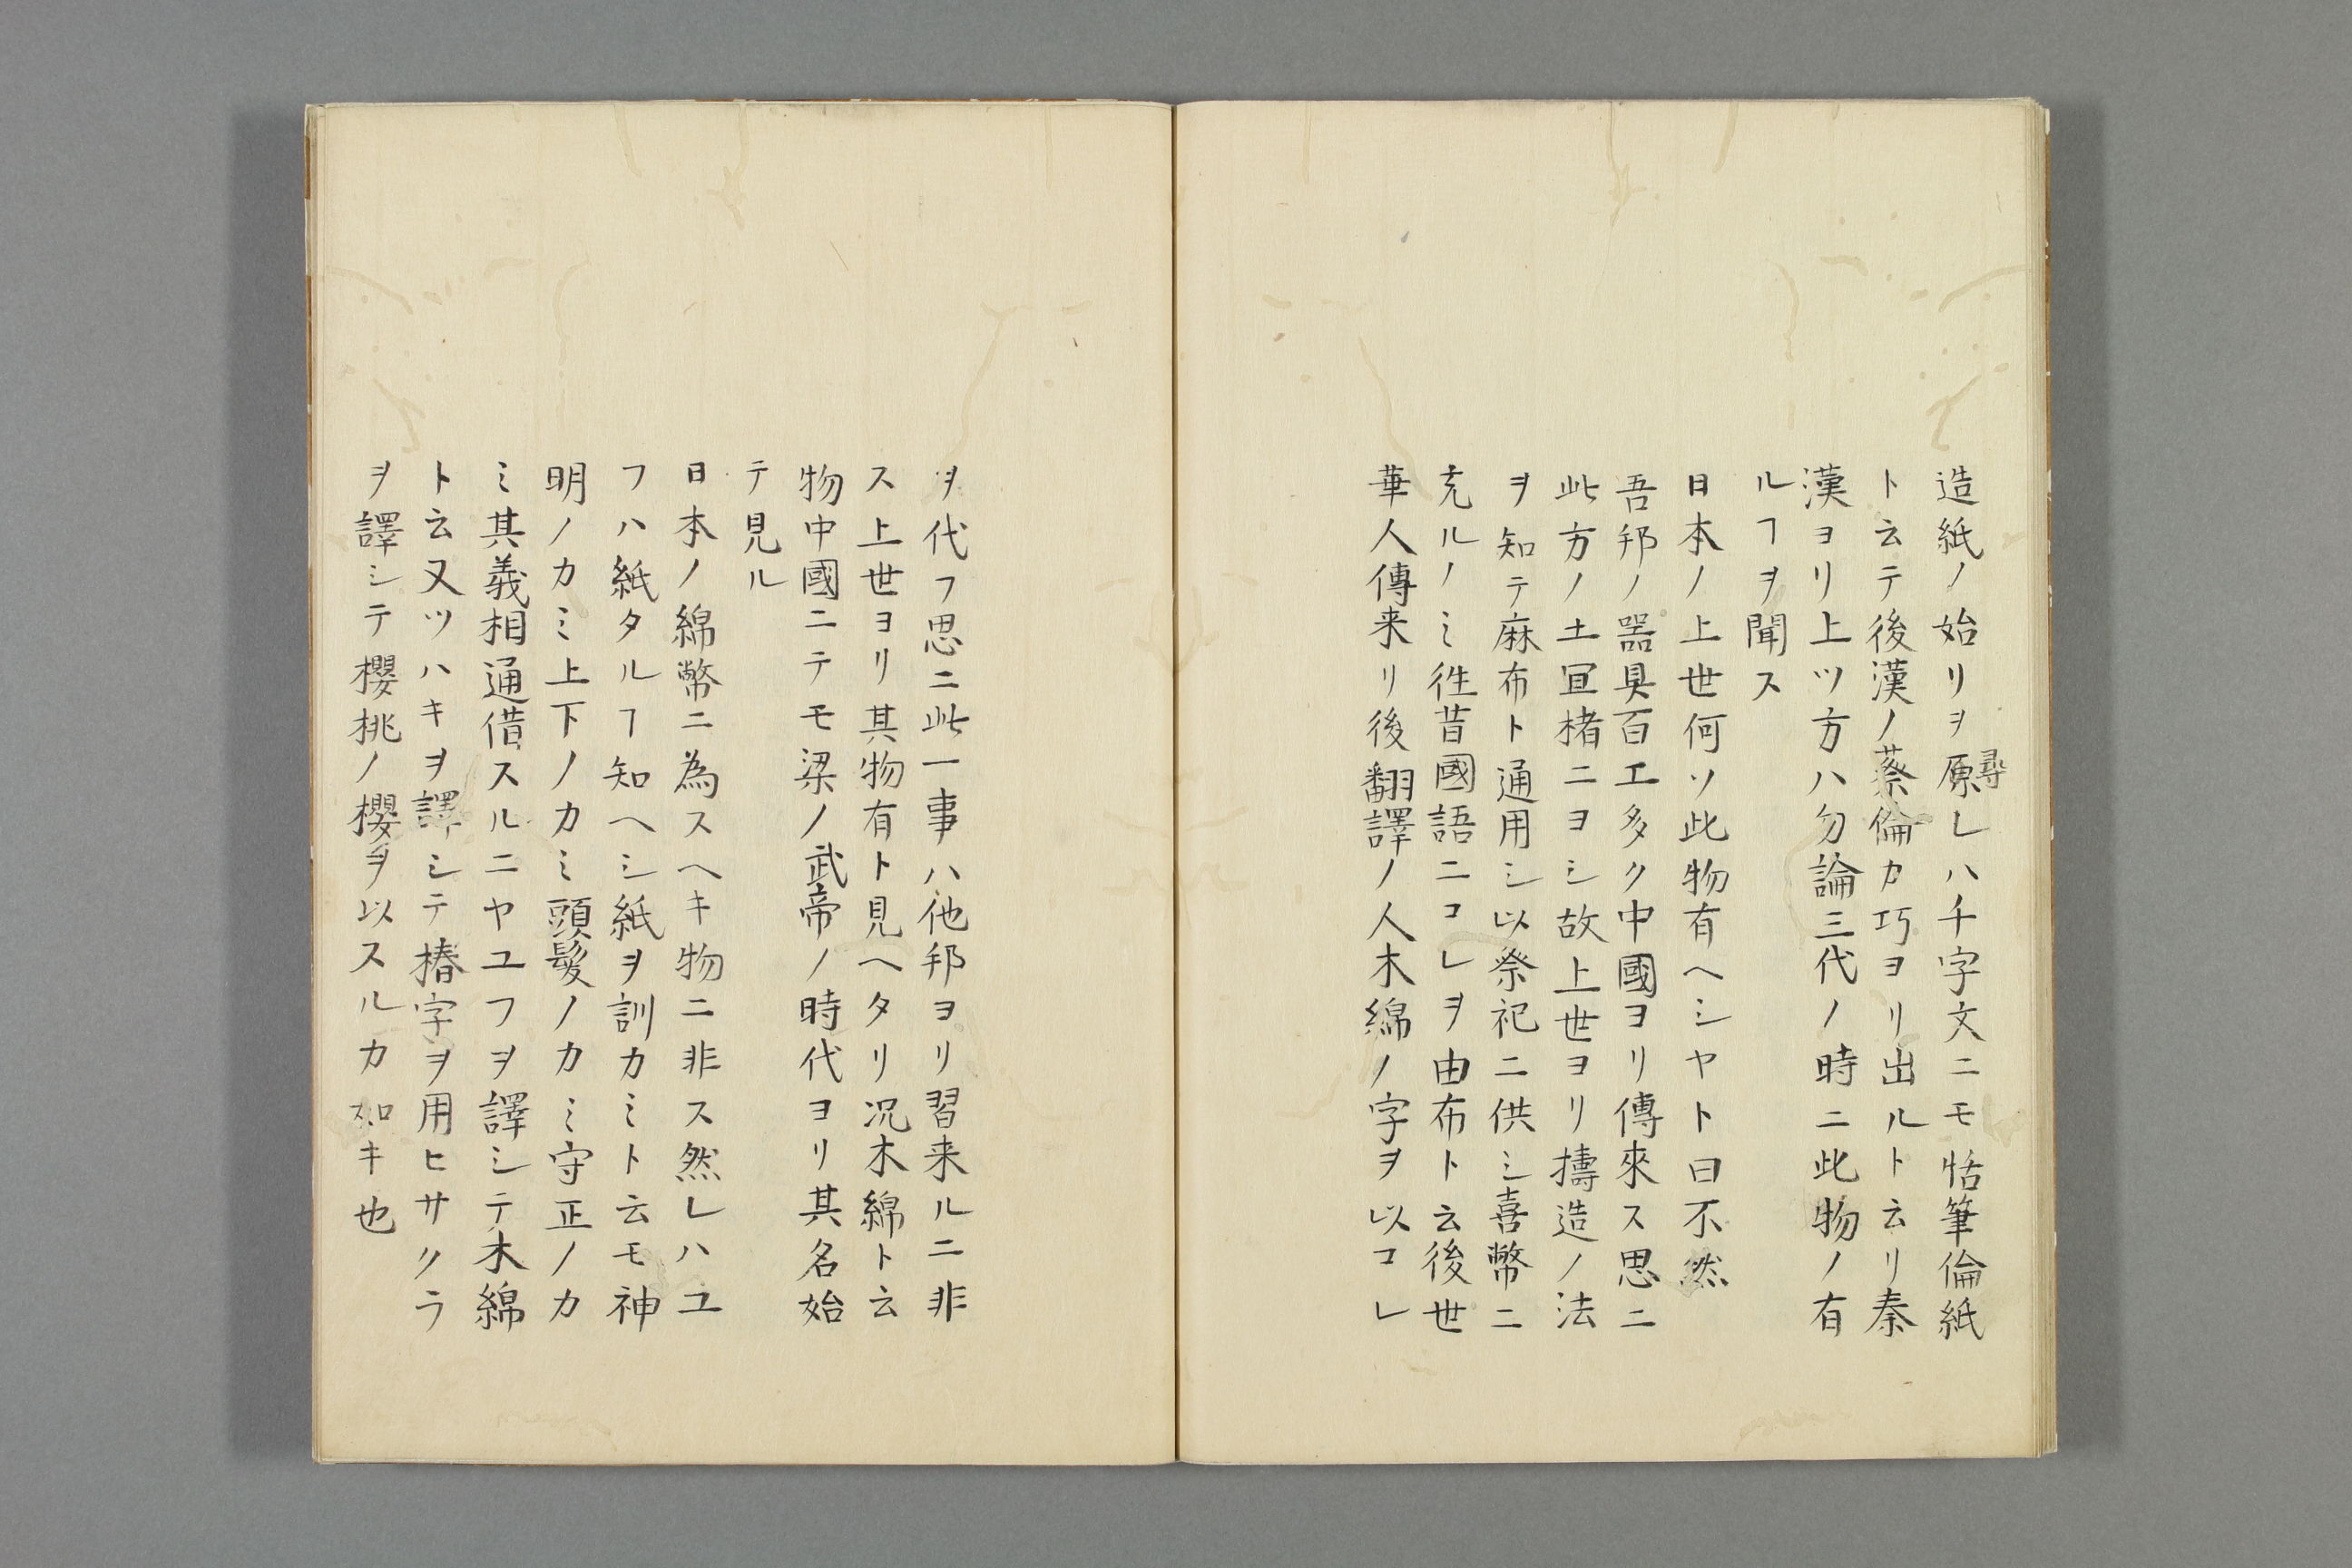 造紙ノ始リヲ原尋レハ千字文ニモ恬筆倫紙
ト云テ後漢ノ蔡倫カ巧ヨリ出ルト云リ秦
漢ヨリ上ツ方ハ勿論三代ノ時ニ此物ノ有
ルヿヲ聞ス
日本ノ上世何ソ此物有ヘシヤト曰不然
吾邦ノ噐具百工多ク中國ヨリ傳來ス思ニ
此方ノ土宜楮ニヨシ故上世ヨリ擣造ノ法
ヲ知テ麻布ト通用シ以祭祀ニ供シ喜幣ニ
充ルノミ徃昔國語ニコレヲ由布ト云後世
華人傳来リ後翻譯ノ人木綿ノ字ヲ以コレ
ヲ代フ思ニ此一事ハ他邦ヨリ習来ルニ非
ス上世ヨリ其物有ト見ヘタリ况木綿ト云
物中國ニテモ梁ノ武帝ノ時代ヨリ其名始
テ見ル
日本ノ綿幣ニ為スヘキ物ニ非ス然レハユ
フハ紙タルヿ知ヘシ紙ヲ訓カミト云モ神
明ノカミ上下ノカミ頭髪ノカミ守正ノカ
ミ其義相通借スルニヤユフヲ譯シテ木綿
ト云又ツハキヲ譯シテ椿字ヲ用ヒサクラ
ヲ譯シテ櫻桃ノ櫻ヲ以スルカ如キ也